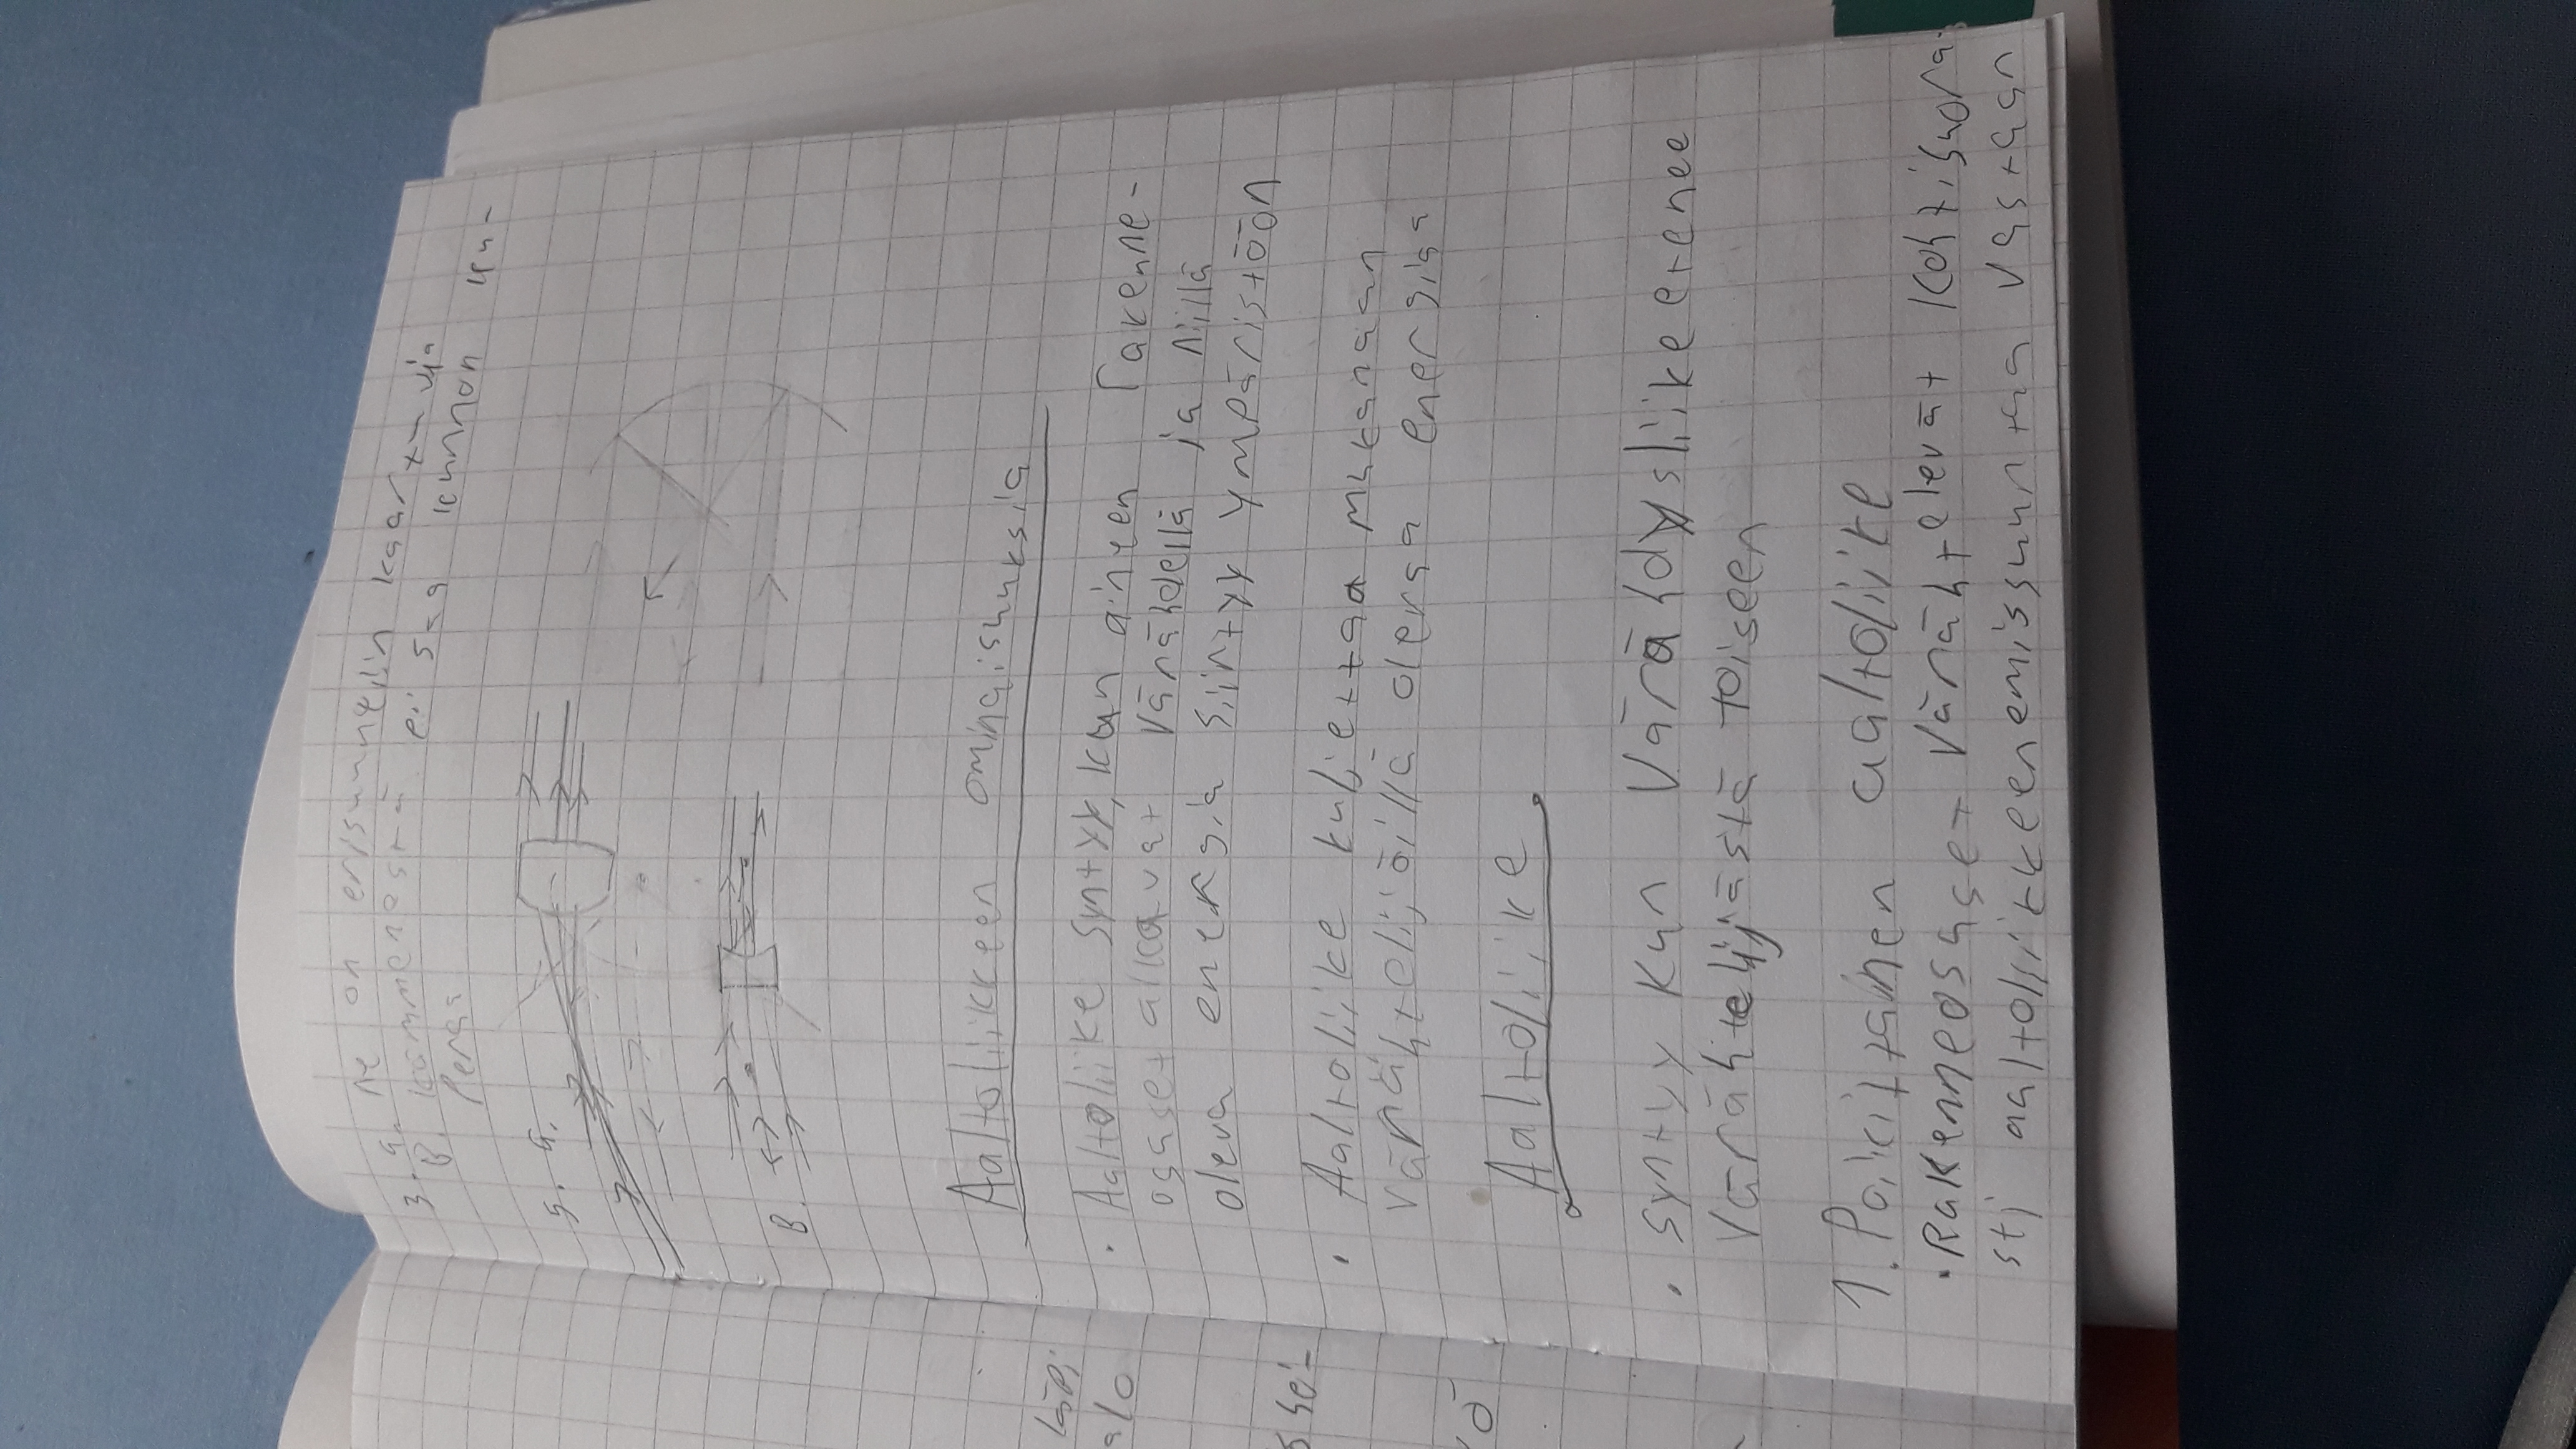 3. a. Ne on erisuuntiin kaartuvia
B. kämmenestä ei saa kunnon ku-
Peraa
5. a.
B.
Aaltoliikkeen ominaisuuksia
• Aaltoliike syntyy, kun aineen rakenne-
osaset alkavat värähdellä ja niillä
oleva energia siirtyy ympäristöön
• Aaltoliike kuljettaa mukanaan
värähtelijöillä olevaa energiaa
Aaltoliike
• syntyy kun värähdysliike etenee
värähtelijästä toiseen
1. Poikittainen aaltoliike
• Rakenneosaset värähtelevät kohtisuora-
sti aaltoliikkeen etenemissuuntaa vastaan